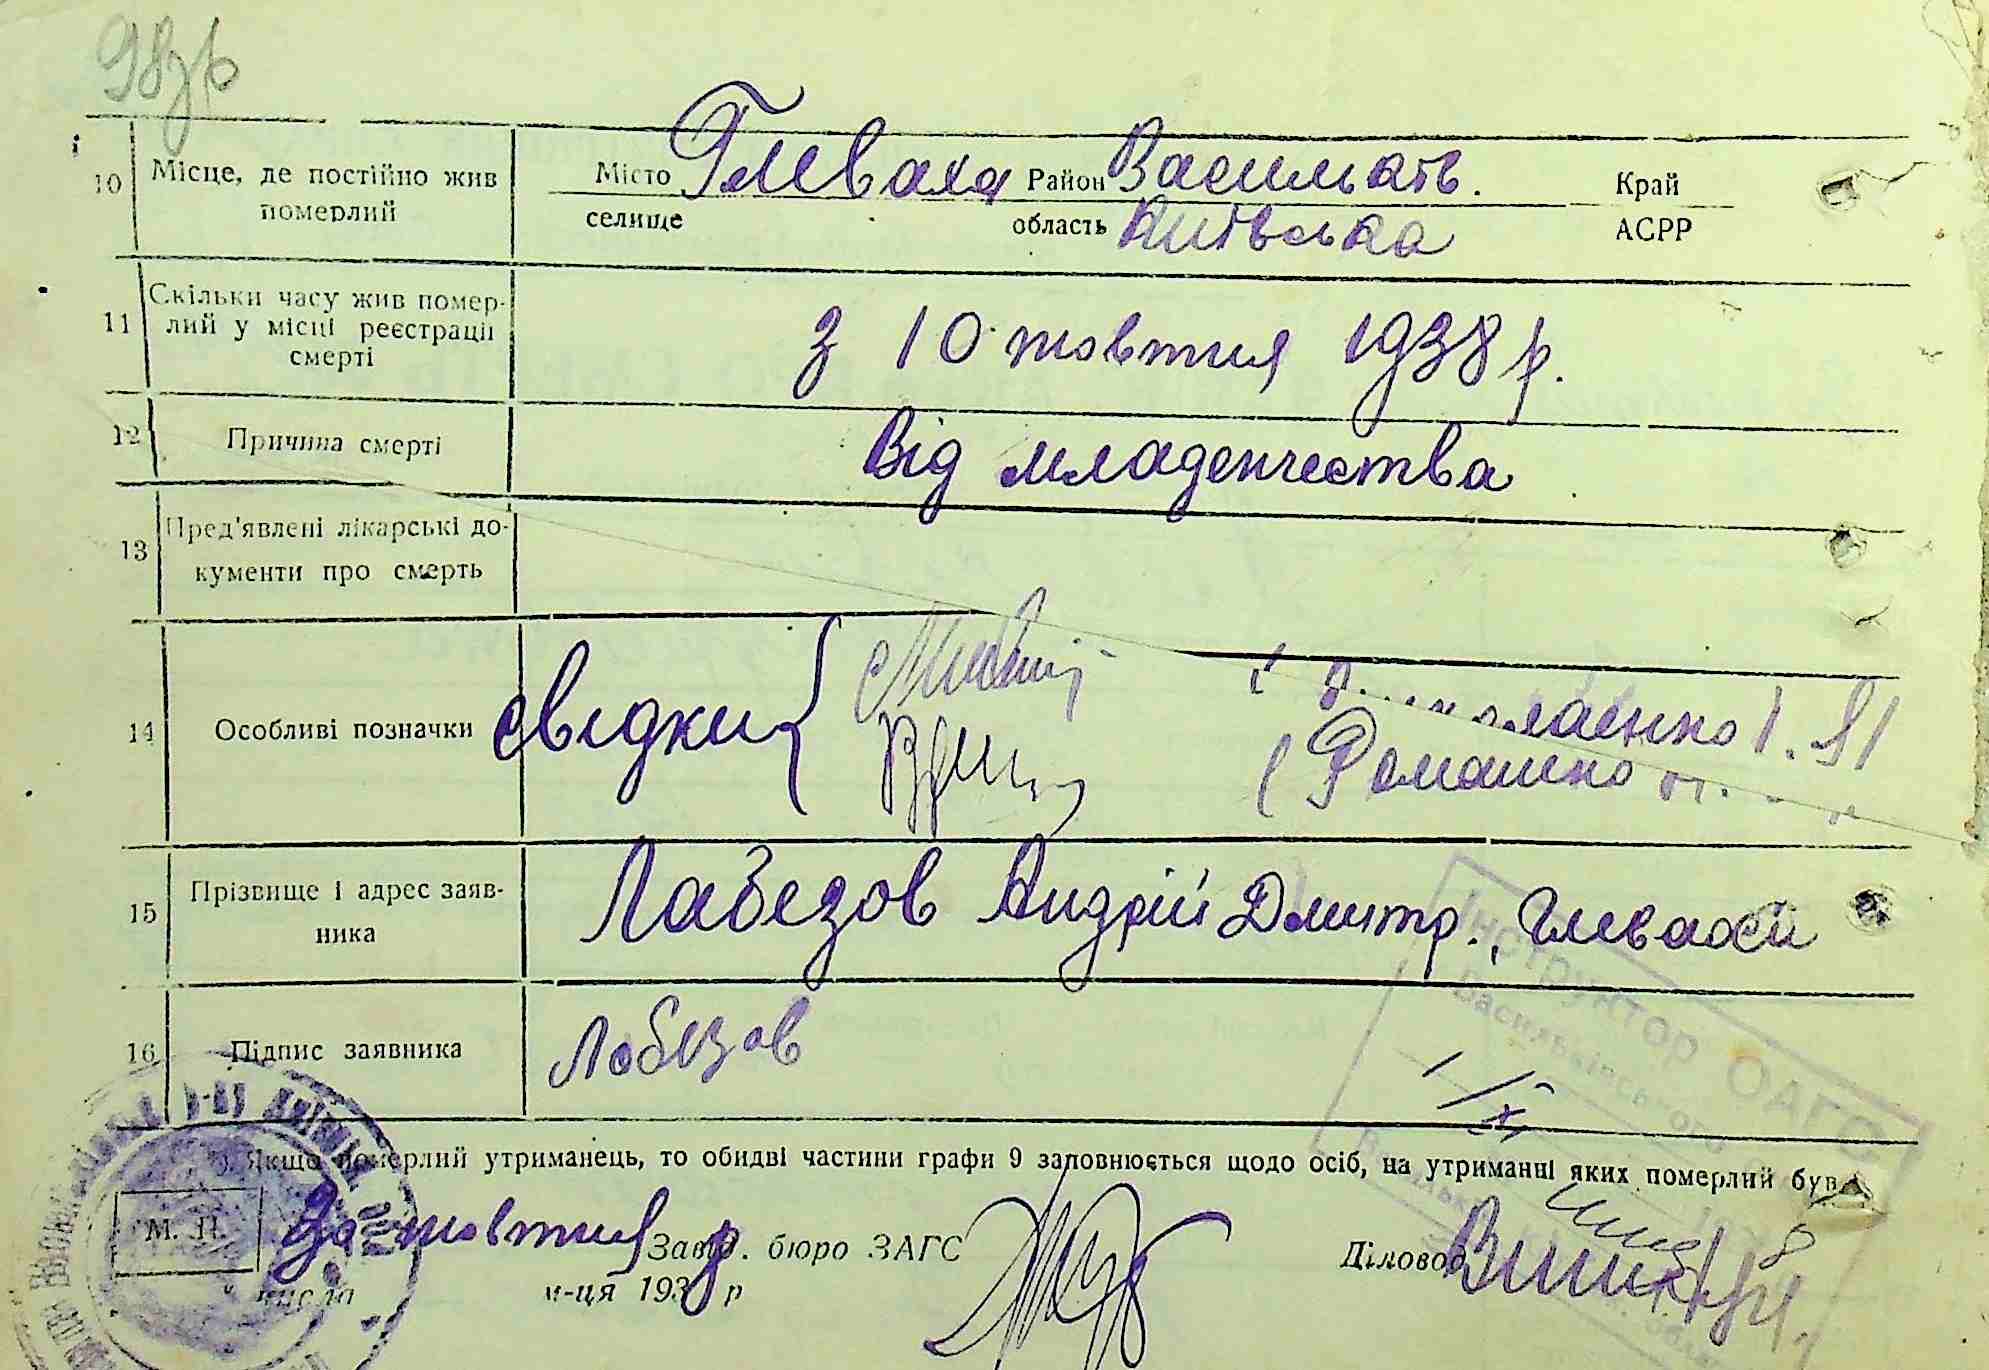 98
10 Місце, де постійно жив померлий
Місто Глеваха Район Васильків.
селище область Київська
Край
АСРР
11 Скільки часу жив померлий у місці реєстрації смерті
З 10 жовтня 1938 р.
12 Причина смерті
Від младенчества
13 Пред'явлені лікарські документи про смерть
14 Особливі позначки
свідки
(Ромашко
15 Прізвище і адрес заявника
Лабезов Андрій Дмитр., Глевахи
16 Підпис заявника
Лобезов
Інструктор ОАГС
Васильківського
Якщо померлий утриманець, то обидві частини графи 9 заповнюється щодо осіб, на утриманні яких померлий був.
М. П.
жовтня Завід. бюро ЗАГС
Діловод
числа м-ця 1938 р